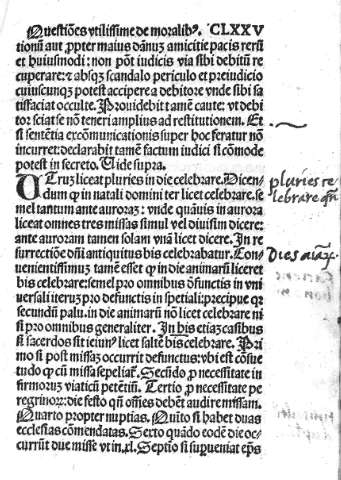 Questiões vtilissime de moralibꝰ. CLXXV
tionũ aut ꝓpter maius dãnũ amicitie pacis rerũ
et huiusmodi: non põt iudicis via sibi debitũ re
cuperare: ⁊ absqꝫ scandalo periculo et preiudicio
cuiuscunqꝫ potest accipere a debitore vnde sibi sa
tisfaciat occulte. Prouidebit tamẽ caute: vt debi
tor sciat se nõ teneri amplius ad restitutionem. Et
si sentẽtia excommunicationis super hoc feratur nõ
incurret: declarabit tamẽ factum iudici si cõmode
potest in secreto. Uide supra.
UTrũ liceat pluries in die celebrare. Dicen-
dum ꝙ in natali domini ter licet celebrare. se
mel tantum ante auroraꝫ: vnde quãuis in aurora
liceat omnes tres missas simul vel diuisim dicere:
ante auroram tamen solam vnã licet dicere. In re
surrectiõe dñi antiquitus bis celebrabatur. Con-
uenientissimuꝫ tamẽ esset ꝙ in die animarũ liceret
bis celebrare: semel pro omnibus dẽfunctis in vni
uersali iteruꝫ pro defunctis in spetiali: precipue qꝛ
secundũ palu. in die animarũ nõ licet celebrare ni
si pro omnibus generaliter. In bis etiaꝫ casibus
si sacerdos sit ieiunꝰ licet saltẽ bis celebrare. Pri
mo si post missaꝫ occurrit defunctus: vbi est cõsue
tudo ꝙ cũ missa sepeliat᷑. Secũdo ꝓ necessitate in
firmorũ viaticũ petẽtiũ. Tertio ꝓ necessitate pe
regrinoꝝ: die festo qñ oẽs debẽt audire missam.
Quarto propter nuptias. Quĩto si habet duas
ecclesias cõmendatas. Sexto quãdo eodẽ die oc-
currũt due misse vt in.xl. Septio si supueniat ep̃s
pluries ce
lebrare qñ
Dies aĩaꝝ.